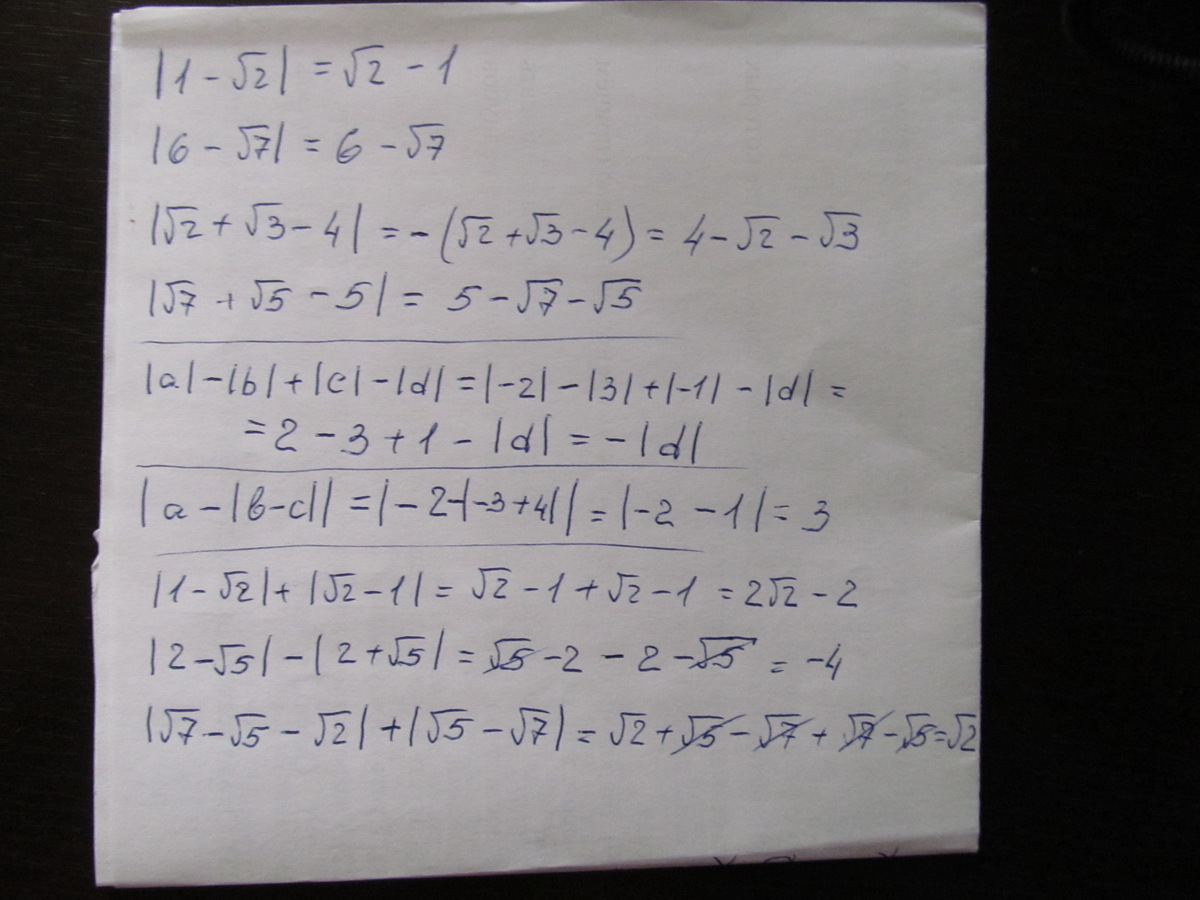 |1 - √2| = √2 - 1
|6 - √7| = 6 - √7
|√2 + √3 - 4| = -(√2 + √3 - 4) = 4 - √2 - √3
|√7 + √5 - 5| = 5 - √7 - √5
|a| - |b| + |c| - |d| = |-2| - |3| + |-1| - |d| =
= 2 - 3 + 1 - |d| = - |d|
|a - |b - c|| = |-2 - |-3 + 4|| = |-2 - 1| = 3
|1 - √2| + |√2 - 1| = √2 - 1 + √2 - 1 = 2√2 - 2
|2 - √5| - |2 + √5| = √5 - 2 - 2 - √5 = -4
|√7 - √5 - √2| + |√5 - √7| = √2 + √5 - √7 + √7 - √5 = √2